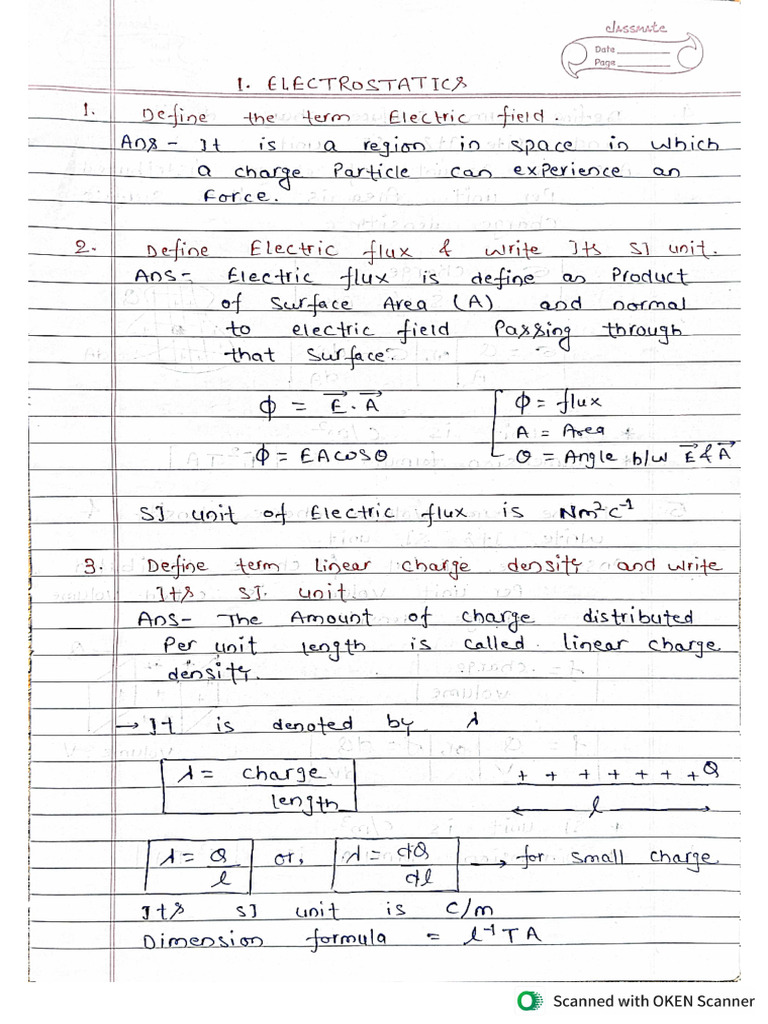 classmate
Date
Page
1. ELECTROSTATICS
1. Define the term Electric field.
Ans - It is a region in space in which
a charge Particle can experience an
Force.
2. Define Electric flux & write Its SI unit.
Ans - Electric flux is define as Product
of surface Area (A) and normal
to electric field Passing through
that surface.
ϕ = E⃗ . A⃗ ϕ = flux
A = Area
ϕ = EA cosθ θ = Angle b/w E⃗ & A⃗
SI unit of Electric flux is Nm²c⁻¹
3. Define term linear charge density and write
Its SI. unit
Ans - The Amount of charge distributed
Per unit length is called linear charge
density.
→ It is denoted by λ
λ = charge + + + + + + + Q
length l
λ = Q/l or, λ = dQ/dl → for small charge
Its SI unit is C/m
Dimension formula = l⁻¹ T A
Scanned with OKEN Scanner